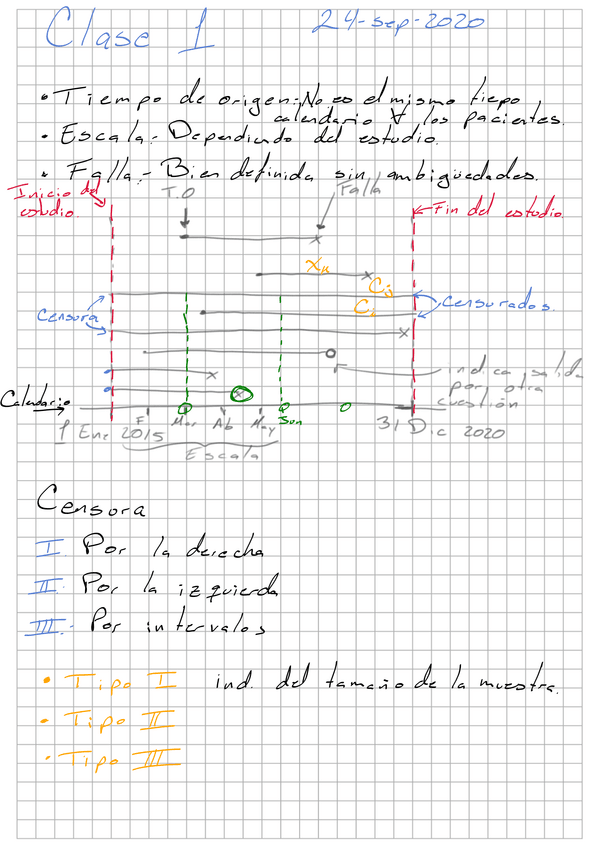 Clase 1
24-sep-2020
• Tiempo de origen:- No es el mismo tiepo
calendario ∀ los pacientes.
• Escala:- Dependiendo del estudio.
• Falla:- Bien definida sin ambigüedades.
Inicio del
estudio.
T.O
Falla
Fin del estudio.
Xk
Cj
Ci
Censurados.
Censura
indica salida
por otra
cuestión
Calendario
1 Ene 2015 F Mar Ab May Jun 31 Dic 2020
Escala
Censora
I. Por la derecha
II. Por la izquierda
III.- Por intervalos
• Tipo I ind. del tamaño de la muestra.
• Tipo II
• Tipo III